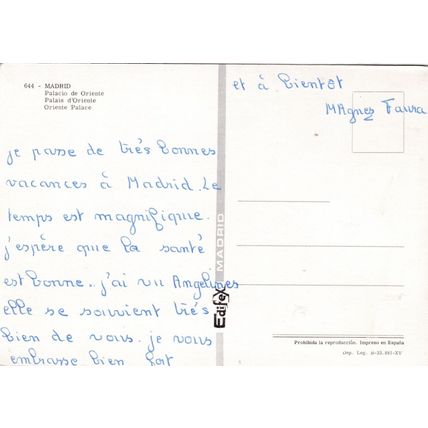 644 - MADRID
Palacio de Oriente
Palais d'Oriente
Oriente Palace
je passe de très bonnes
vacances à Madrid. Le
temps est magnifique.
j'espère que la santé
est bonne. j'ai vu Angelines
elle se souvient très
bien de vous. je vous
embrasse bien fort
et à bientôt
MAgnes Faura
MADRID
Edifex
Prohibida la reproducción. Impreso en España
Dep. Leg. B-33.